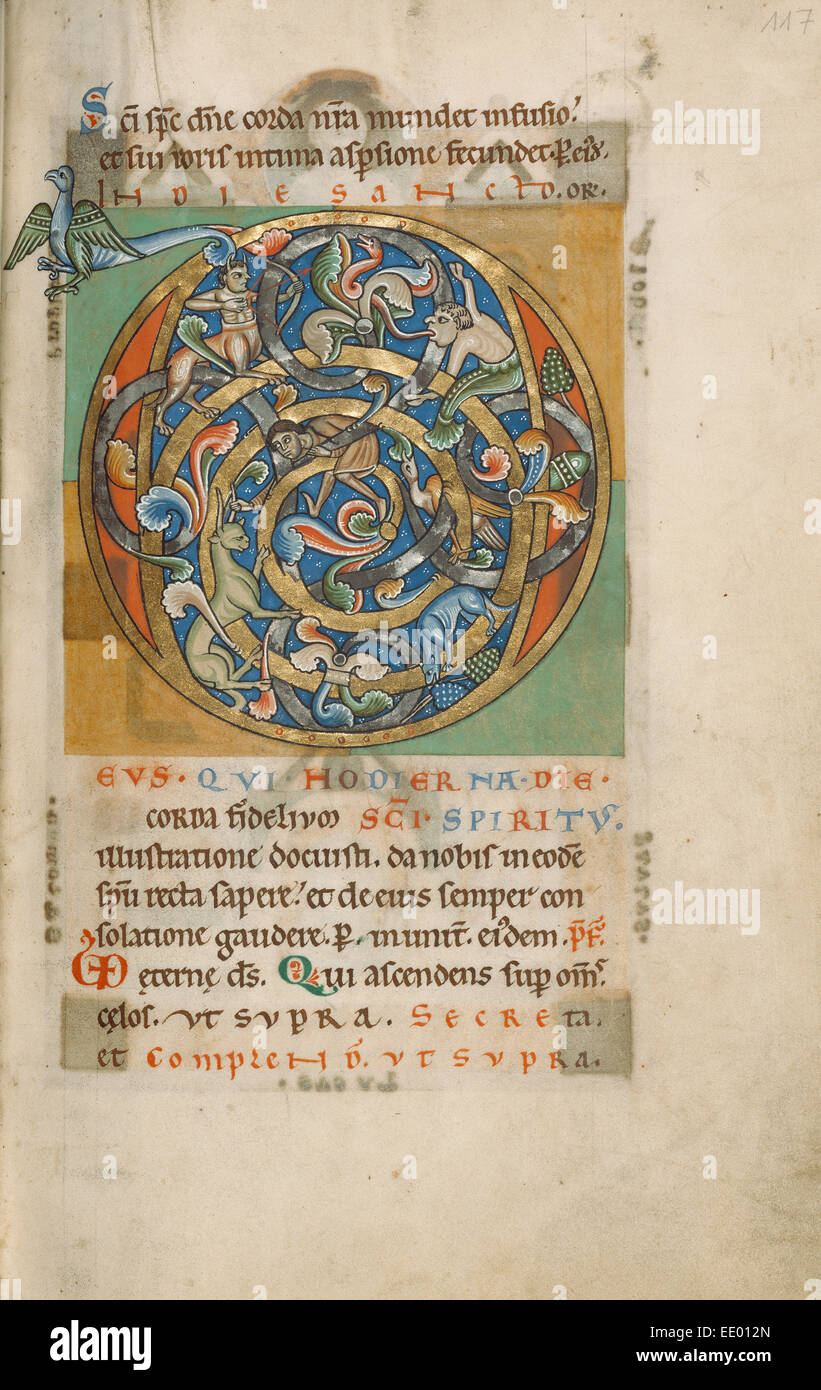 117
Sc̄i sp̄c dn̄e corda nr̄a mundet infusio.
et sui roris intima aspsione fecundet. P. eiꝰd.
IN DIE SANCTO. OR.
EVS · QVI · HODIERNA · DIE ·
CORDA fidelium SC̄I · SPIRITV.
illustratione docuisti. da nobis in eodē
spū recta sapere. et de eius semper con
solatione gaudere. P. munit. eiꝰdem. PF.
ęternę ds̄. Qui ascendens sup om̄s
cęlos. VT SVPRA. SECRETA.
et COMPLEND. VT SVPRA.
alamy
www.alamy.com
EE012N